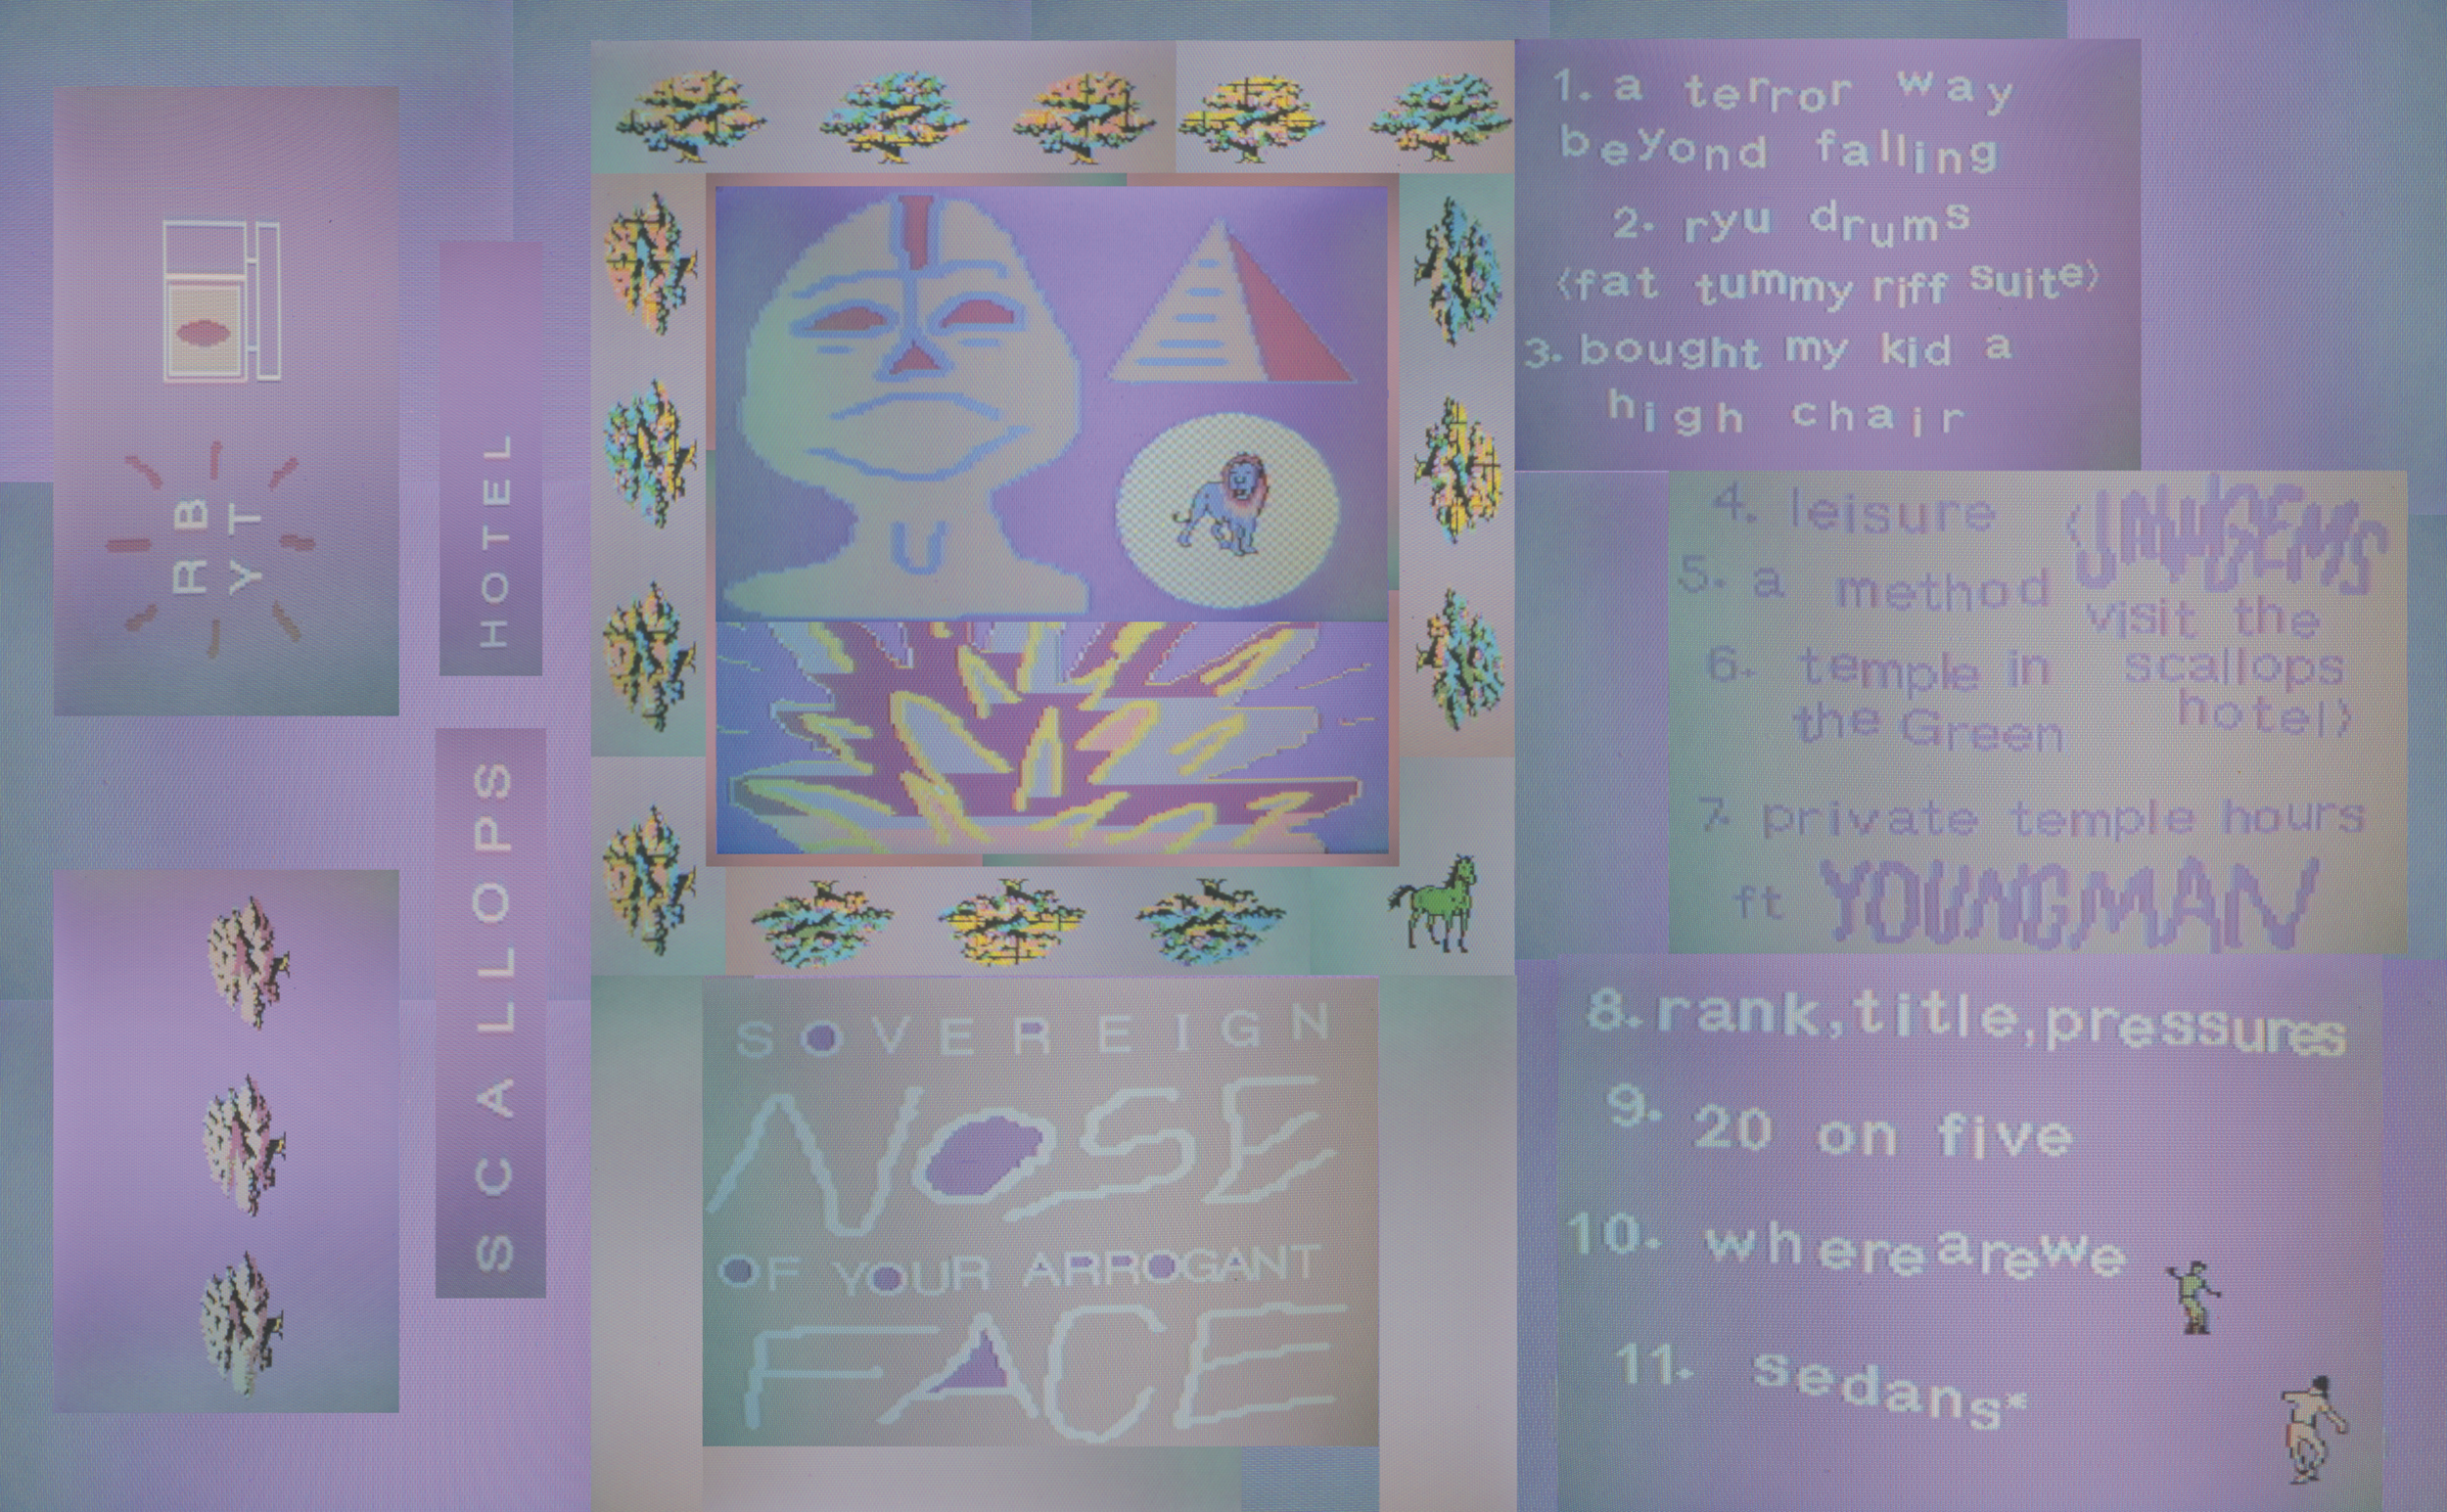 R B
Y T
HOTEL
SCALLOPS
SOVEREIGN
NOSE
OF YOUR ARROGANT
FACE
1. a terror way
beyond falling
2. ryu drums
<fat tummy riff suite>
3. bought my kid a
high chair
4. leisure
5. a method
6. temple in
the Green
<JAWGEMS
visit the
scallops
hotel>
7. private temple hours
ft YOUNGMAN
8. rank, title, pressures
9. 20 on five
10. wherearewe
11. sedans*